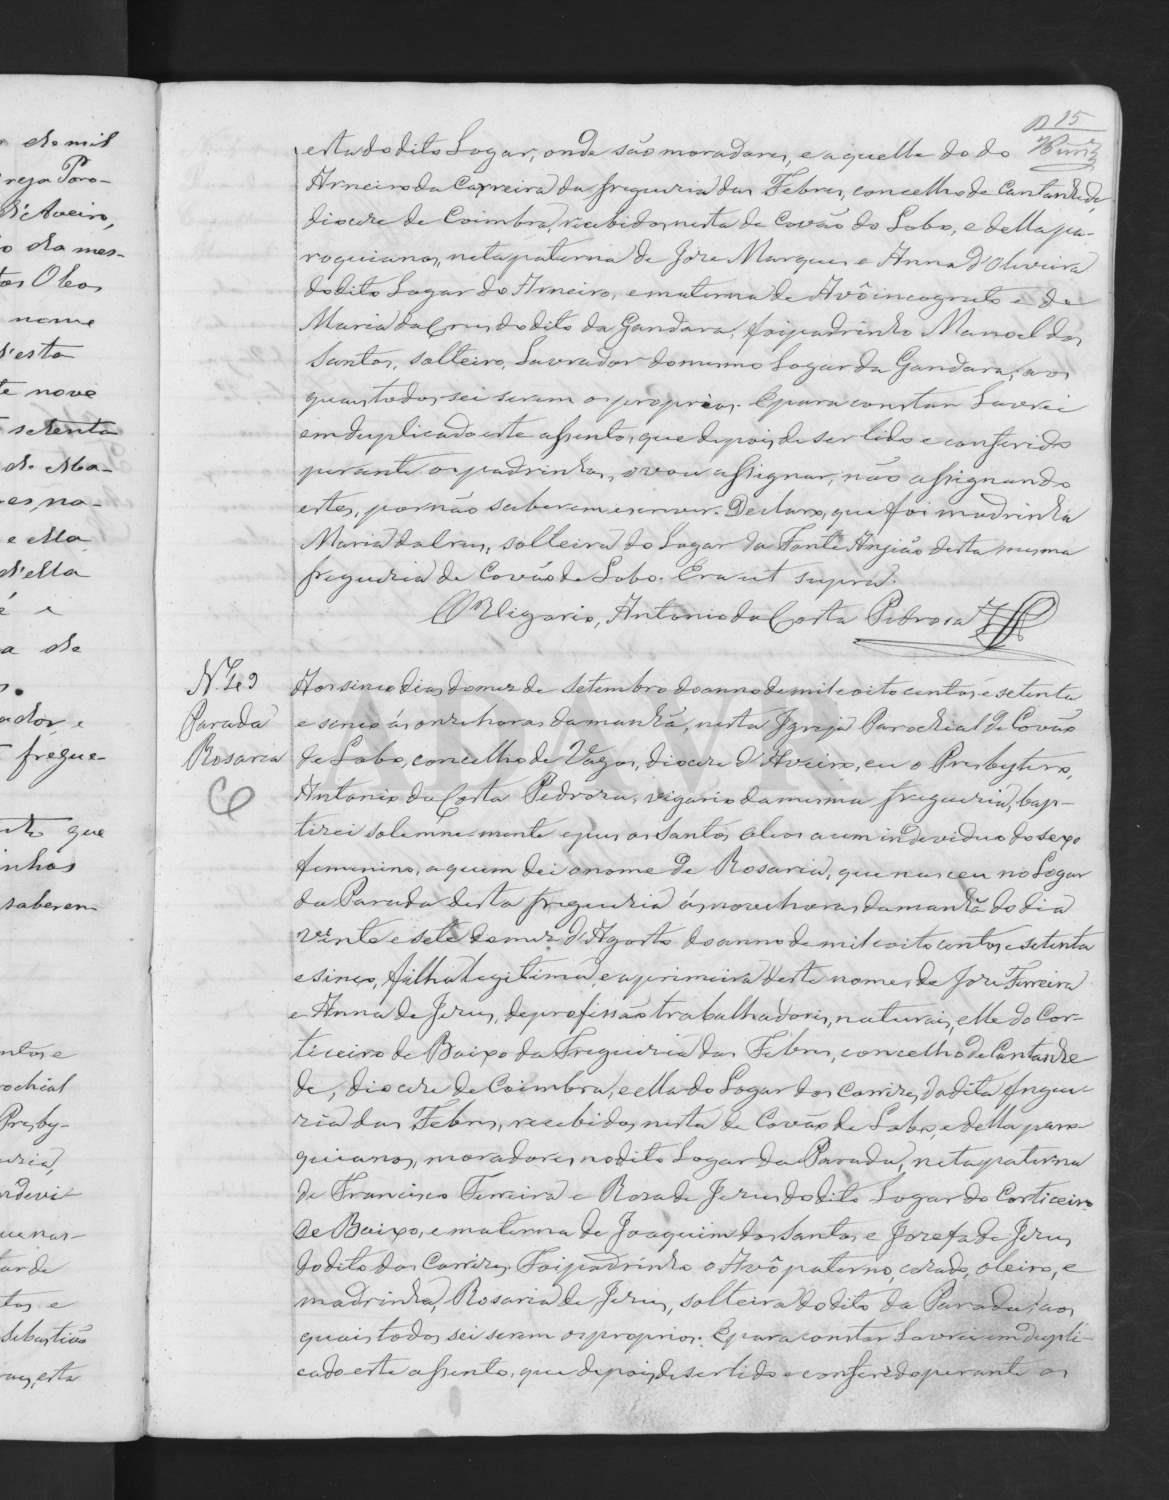 15
esta do dito Logar, onde são moradores, e aquelle do do
Arneiro da Carreira da freguezia das Febres, concelho de Cantanhede,
diocese de Coimbra, recebidos nesta de Covão do Lobo, e della pa-
roquianos, neta paterna de Joze Marques e Anna d'Oliveira
do dito Logar do Arneiro, e materna de Avô incognito e de
Maria da Crus do dito da Gandara, foi padrinho Manoel dos
Santos, solteiro, Lavrador do mesmo Logar da Gandara; aos
quaes todos sei serem os proprios. E para constar Lavrei
em duplicado este assento, que depois de ser lido e conferido
perante os padrinhos, o vou assignar, não assignando
estes, por não saberem escrever. Declaro, que foi madrinha
Maria da Crus, solteira do Lugar da Fonte Angião desta mesma
freguezia de Covão de Lobo. Era ut supra.
O Vigario, Antonio da Costa Pedrosa
N.º 49
Parada
Rosaria
Aos sinco dias do mez de Setembro do anno de mil oito centos e setenta
e sinco ás onze horas da manhã, nesta Igreja Parochial de Covão
de Lobo, concelho de Vagos, diocese d'Aveiro, eu o Presbytero,
Antonio da Costa Pedroza, vigario da mesma freguezia, bap-
tizei solemnemente e pus os Santos oleos a um individuo do sexo
femenino, a quem dei o nome de Rosaria, que nasceu no Logar
da Parada desta freguezia ás nove horas da manhã do dia
vinte e sete do mez d'Agosto do anno de mil oito centos e setenta
e sinco, filha legitima, e a primeira deste nome, de Joze Ferreira
e Anna de Jezus, de profissão trabalhadores, naturais, elle do Cor-
ticeiro de Baixo da Freguezia das Febres, concelho de Cantanhe
de, diocese de Coimbra, e ella do Logar dos Carrizes, da dita fregue-
zia das Febres, recebidos nesta de Covão de Lobo, e della paro-
quianos, moradores no dito Logar da Parada, neta paterna
de Francisco Ferreira e Rosa de Jezus do dito Logar do Corticeiro
de Baixo, e materna de Joaquim dos Santos e Jozefa de Jezus
do dito dos Carrizes. Foi padrinho o Avô paterno, cazado, oleiro, e
madrinha, Rosaria de Jezus, solteira do dito da Parada; aos
quais todos sei serem os proprios. E para constar Lavrei em dupli-
cado este assento, que depois de ser lido e conferido perante os